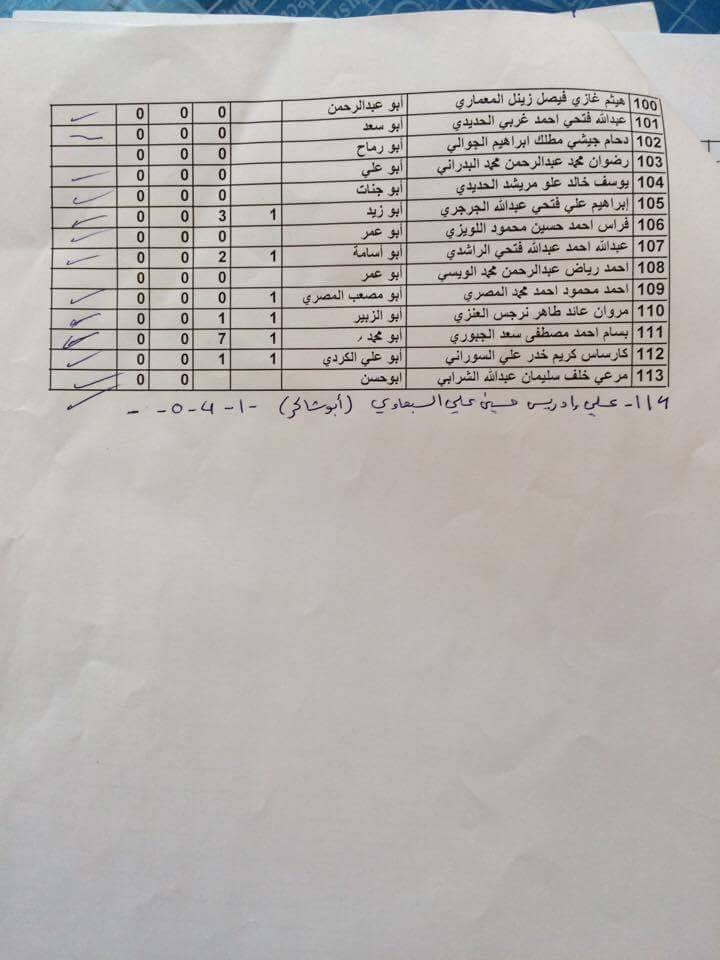 100 هيثم غازي فيصل زينل المعماري أبو عبدالرحمن 0 0 0
101 عبدالله فتحي احمد غربي الحديدي أبو سعد 0 0 0
102 دحام جيشي مطلك ابراهيم الجوالي أبو رماح 0 0 0
103 رضوان محمد عبدالرحمن محمد البدراني أبو علي 0 0 0
104 يوسف خالد علو مريشد الحديدي أبو جنات 0 0 0
105 إبراهيم علي فتحي عبدالله الجرجري أبو زيد 1 3 0 0
106 فراس احمد حسين محمود اللويزي أبو عمر 0 0 0
107 عبدالله احمد عبدالله فتحي الراشدي أبو أسامة 1 2 0 0
108 احمد رياض عبدالرحمن محمد الويسي أبو عمر 0 0 0
109 احمد محمود احمد محمد المصري أبو مصعب المصري 1 0 0 0
110 مروان عائد طاهر نرجس العنزي أبو الزبير 1 1 0 0
111 بسام احمد مصطفى سعد الجبوري أبو محمد 1 7 0 0
112 كارساس كريم خدر علي السوراني أبو علي الكردي 1 1 0 0
113 مرعي خلف سليمان عبدالله الشرابي ابوحسن 0 0
114- علي ادريس حسين علي السبعاوي (أبو شاكر) -1-4-0-